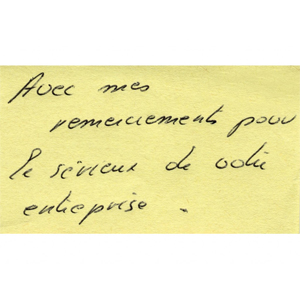 Avec mes
remerciements pour
le sérieux de votre
entreprise.